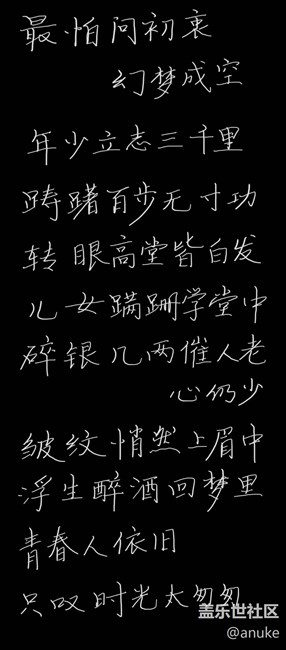 最怕问初衷
幻梦成空
年少立志三千里
踌躇百步无寸功
转眼高堂皆白发
儿女蹒跚学堂中
碎银几两催人老
心仍少
皱纹悄然上眉中
浮生醉酒回梦里
青春人依旧
只叹时光太匆匆
盖乐世社区
@anuke